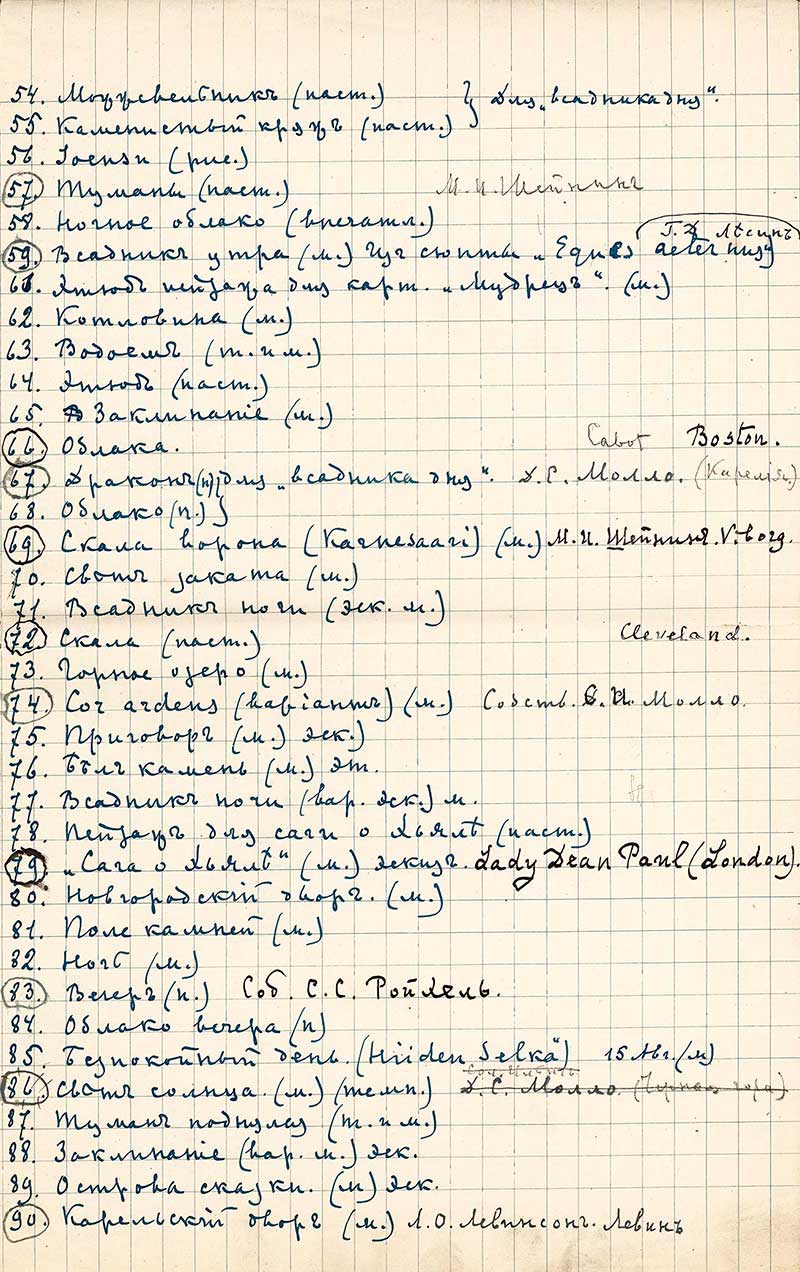 54. Можжевельникъ (паст.) } Для „всадника дня“.
55. Каменистый кряжъ (паст.)
56. Joensu (рис.)
57. Туманы (паст.) М. И. Шейнинъ
58. Ночное облако (впечатл.)
Г. Д. Лѣсинъ
59. Всадникъ утра (м.) Изъ сюиты „Eques aeternus“
61. Этюдъ пейзажа для карт. „Мудрецъ“. (м.)
62. Котловина (м.)
63. Водоемъ (т. и м.)
64. Этюдъ (паст.)
65. Заклинанiе (м.)
66. Облака. Cabot Boston.
67. Драконъ (п), для „всадника дня“. Д. С. Молло. (Карелiя)
68. Облако (п.) }
69. Скала ворона (Karnesaari) (м.) М. И. Шейнинъ. Viborg.
70. Свѣтъ заката (м.)
71. Всадникъ ночи (эск. м.)
72. Скала (паст.) Cleveland.
73. Горное озеро (м.)
74. Cor ardens (варiантъ) (м.) Собств. С. И. Молло.
75. Приговоръ (м.) эск.)
76. Бѣлъ камень (м.) эт.
77. Всадникъ ночи (вар. эск.) м.
78. Пейзажъ для саги о Хьялѣ (паст.)
79. „Сага о Хьялѣ“ (м.) эскизъ. Lady Dean Paul (London).
80. Новгородскiй дворъ. (м.)
81. Поле камней (м.)
82. Ночь (м.)
83. Вечеръ (п.) Соб. С. С. Ройхель.
84. Облако вечера (п)
85. Безпокойный день. (Hiiden Selkä) 15 Авг. (м)
86. Свѣтъ солнца. (м.) (темп.) Д. С. Молло. (Черная гора)
87. Туманъ поднялся (т. и м.)
88. Заклинанiе (вар. м.) эск.
89. Острова сказки. (м) эск.
90. Карельскiй дворъ (м.) Л. О. Левинсонъ. Левинъ